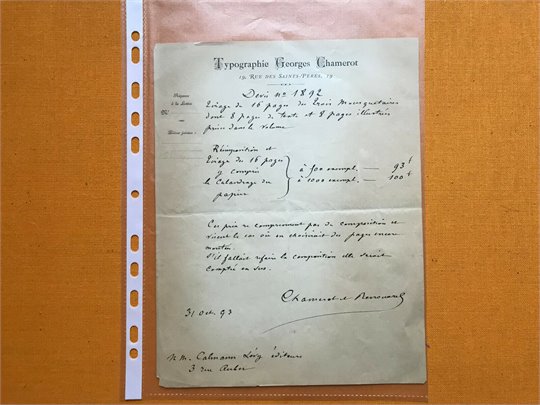 Typographie Georges Chamerot
19, RUE DES SAINTS-PÈRES, 19
Réponse
à la Lettre
Devis No 1892
Tirage de 16 pages des Trois Mousquetaires
dont 8 pages de texte et 8 pages illustrées
prises dans le volume
Réimposition et
Tirage des 16 pages
y compris
le Calandrage du
papier
à 500 exempl. — 93 f
à 1000 exempl. — 100 f
Ces prix ne comprennent pas de composition
le cas où on choisirait des pages encore
montées.
S'il fallait refaire la composition elle serait
comptée en sus.
Chamerot et Renouard
31 Oct. 93
M.M. Calmann Lévy éditeurs
3 rue Auber